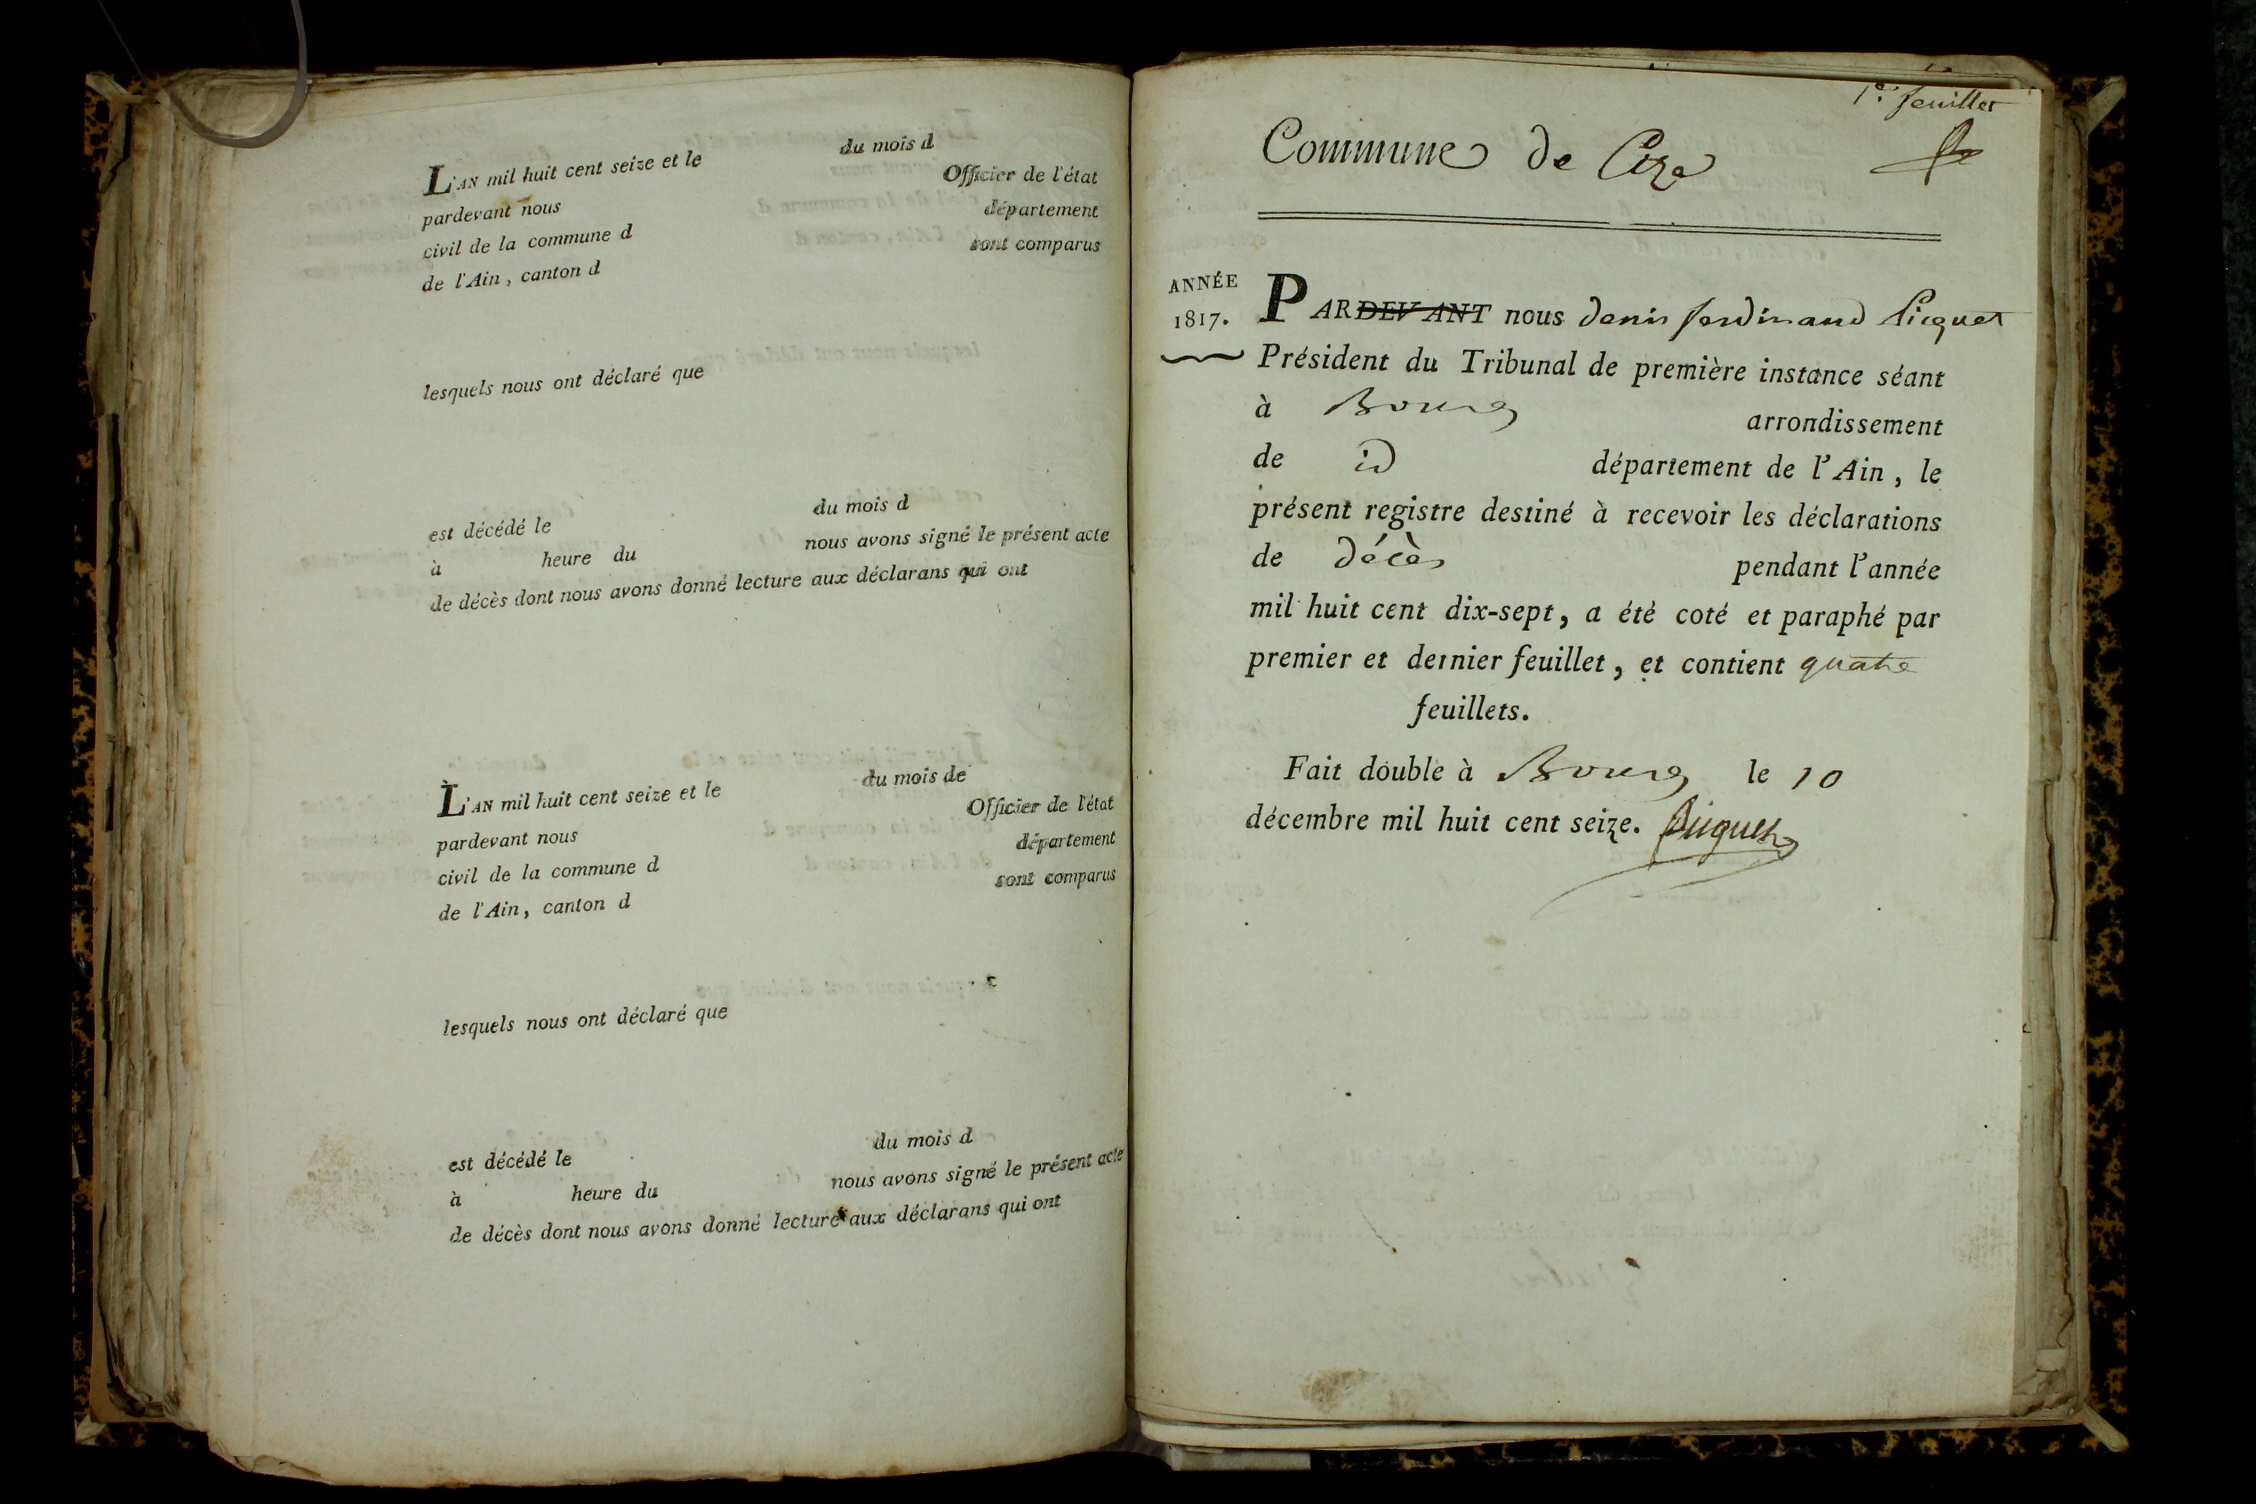 L'AN mil huit cent seize et le du mois d
pardevant nous Officier de l'état
civil de la commune d département
de l'Ain, canton d sont comparus
lesquels nous ont déclaré que
est décédé le du mois d
à heure du nous avons signé le présent acte
de décès dont nous avons donné lecture aux déclarans qui ont
L'AN mil huit cent seize et le du mois de
pardevant nous Officier de l'état
civil de la commune d département
de l'Ain, canton d sont comparus
lesquels nous ont déclaré que
est décédé le du mois d
à heure du nous avons signé le présent acte
de décès dont nous avons donné lecture aux déclarans qui ont
1er feuillet
Commune de Cize
ANNÉE
1817.
PARDEVANT nous denis ferdinand Picquet
Président du Tribunal de première instance séant
à Bourg arrondissement
de id département de l'Ain, le
présent registre destiné à recevoir les déclarations
de décès pendant l'année
mil huit cent dix-sept, a été coté et paraphé par
premier et dernier feuillet, et contient quatre
feuillets.
Fait double à Bourg le 10
décembre mil huit cent seize. Picquet